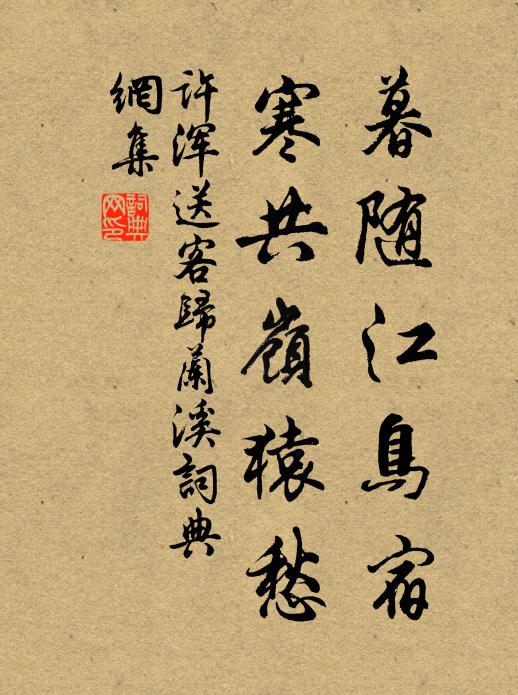 暮随江鳥宿
寒共嶺猿愁
許渾送客歸蘭溪詞典
網集
詞典
网印